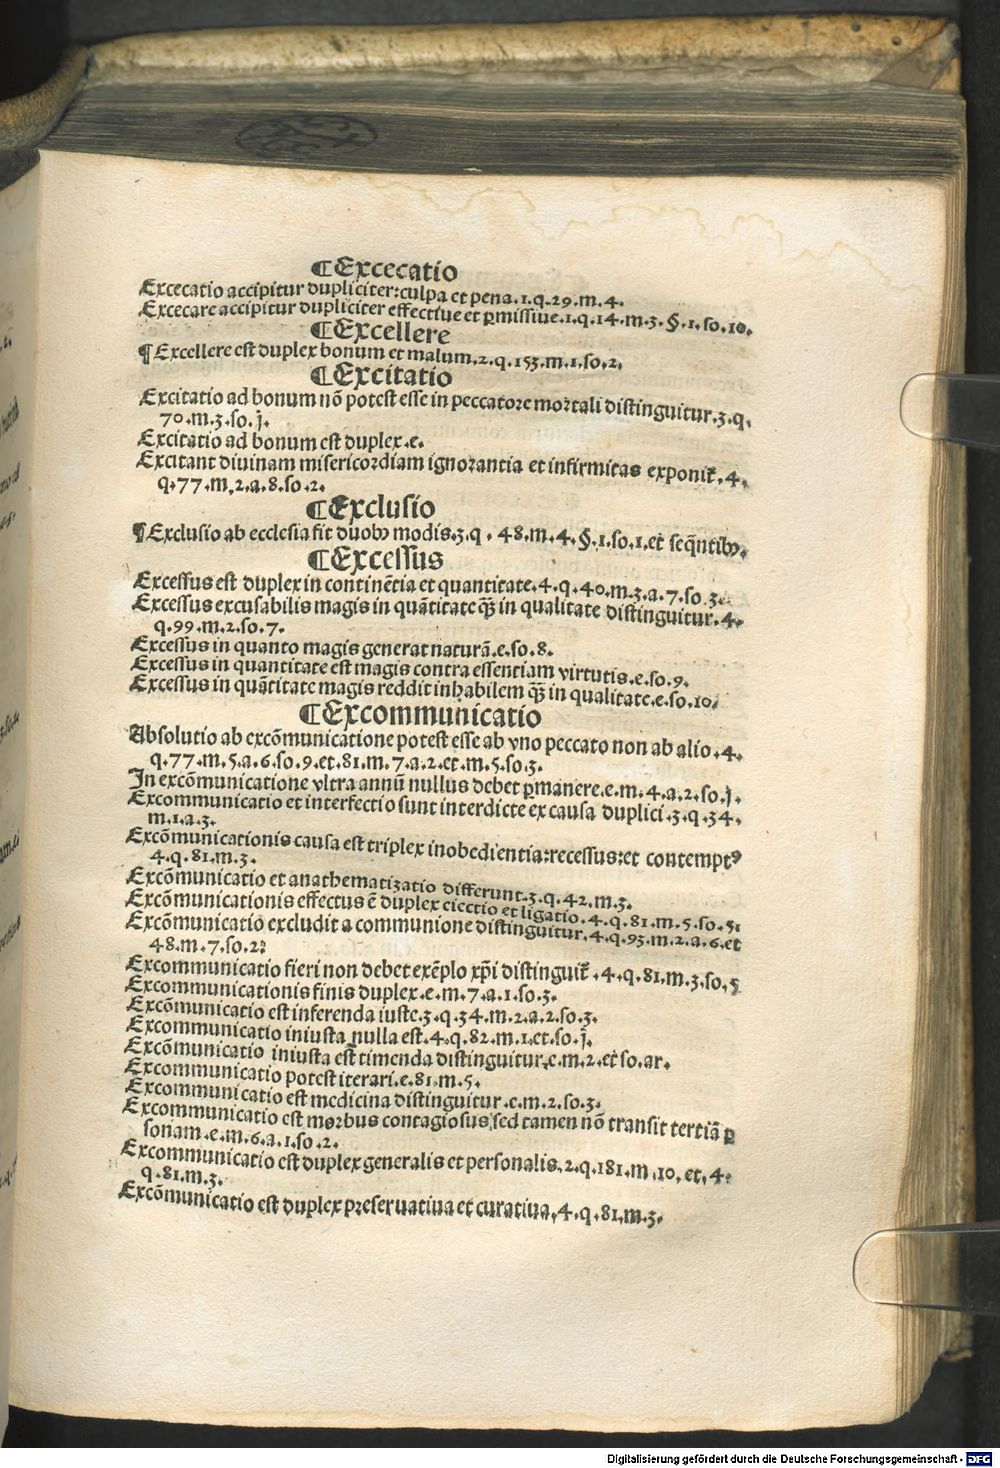 ¶Excecatio
Excecatio accipitur dupliciter: culpa et pena.1.q.29.m.4.
Excecare accipitur dupliciter effectiue et ꝑmissiue.1.q.14.m.3.§.1.so.10.
¶Excellere
¶Excellere est duplex bonum et malum.2.q.153.m.1.so.2.
¶Excitatio
Excitatio ad bonum nō potest esse in peccatore mortali distinguitur.3.q.
70.m.3.so.j.
Excitatio ad bonum est duplex.e.
Excitant diuinam misericordiam ignorantia et infirmitas exponit̃.4.
q.77.m.2.a.8.so.2.
¶Exclusio
¶Exclusio ab ecclesia fit duobꝫ modis.3.q.48.m.4.§.1.so.1.et seq̄ntibꝫ.
¶Excessus
Excessus est duplex in continētia et quantitate.4.q.40.m.3.a.7.so.3.
Excessus excusabilis magis in quātitate q̄ꝫ in qualitate distinguitur.4.
q.99.m.2.so.7.
Excessus in quanto magis generat naturā.e.so.8.
Excessus in quantitate est magis contra essentiam virtutis.e.so.9.
Excessus in quātitate magis reddit inhabilem q̄ꝫ in qualitate.e.so.10.
¶Excommunicatio
Absolutio ab excōmunicatione potest esse ab vno peccato non ab alio.4.
q.77.m.5.a.6.so.9.et.81.m.7.a.2.et.m.5.so.3.
In excōmunicatione vltra annū nullus debet ꝑmanere.e.m.4.a.2.so.j.
Excommunicatio et interfectio sunt interdicte ex causa duplici.3.q.34.
m.1.a.3.
Excōmunicationis causa est triplex inobedientia: recessus: et contemptꝰ
4.q.81.m.3.
Excōmunicatio et anathematizatio differunt.3.q.42.m.3.
Excōmunicationis effectus ē duplex eiectio et ligatio.4.q.81.m.5.so.5.
Excōmunicatio excludit a communione distinguitur.4.q.93.m.2.a.6.et
48.m.7.so.2.
Excommunicatio fieri non debet exēplo xp̄i distinguit̃.4.q.81.m.3.so.5
Excommunicationis finis duplex.e.m.7.a.1.so.3.
Excōmunicatio est inferenda iuste.3.q.34.m.2.a.2.so.3.
Excommunicatio iniusta nulla est.4.q.82.m.1.et.so.j.
Excōmunicatio iniusta est timenda distinguitur.e.m.2.et so.ar.
Excommunicatio potest iterari.e.81.m.5.
Excommunicatio est medicina distinguitur.e.m.2.so.3.
Excommunicatio est morbus contagiosus sed tamen nō transit tertiā ꝑ
sonam.e.m.6.a.1.so.2.
Excommunicatio est duplex generalis et personalis.2.q.181.m.10.et.4.
q.81.m.3.
Excōmunicatio est duplex preseruatiua et curatiua.4.q.81.m.3.
Digitalisierung gefördert durch die Deutsche Forschungsgemeinschaft - DFG